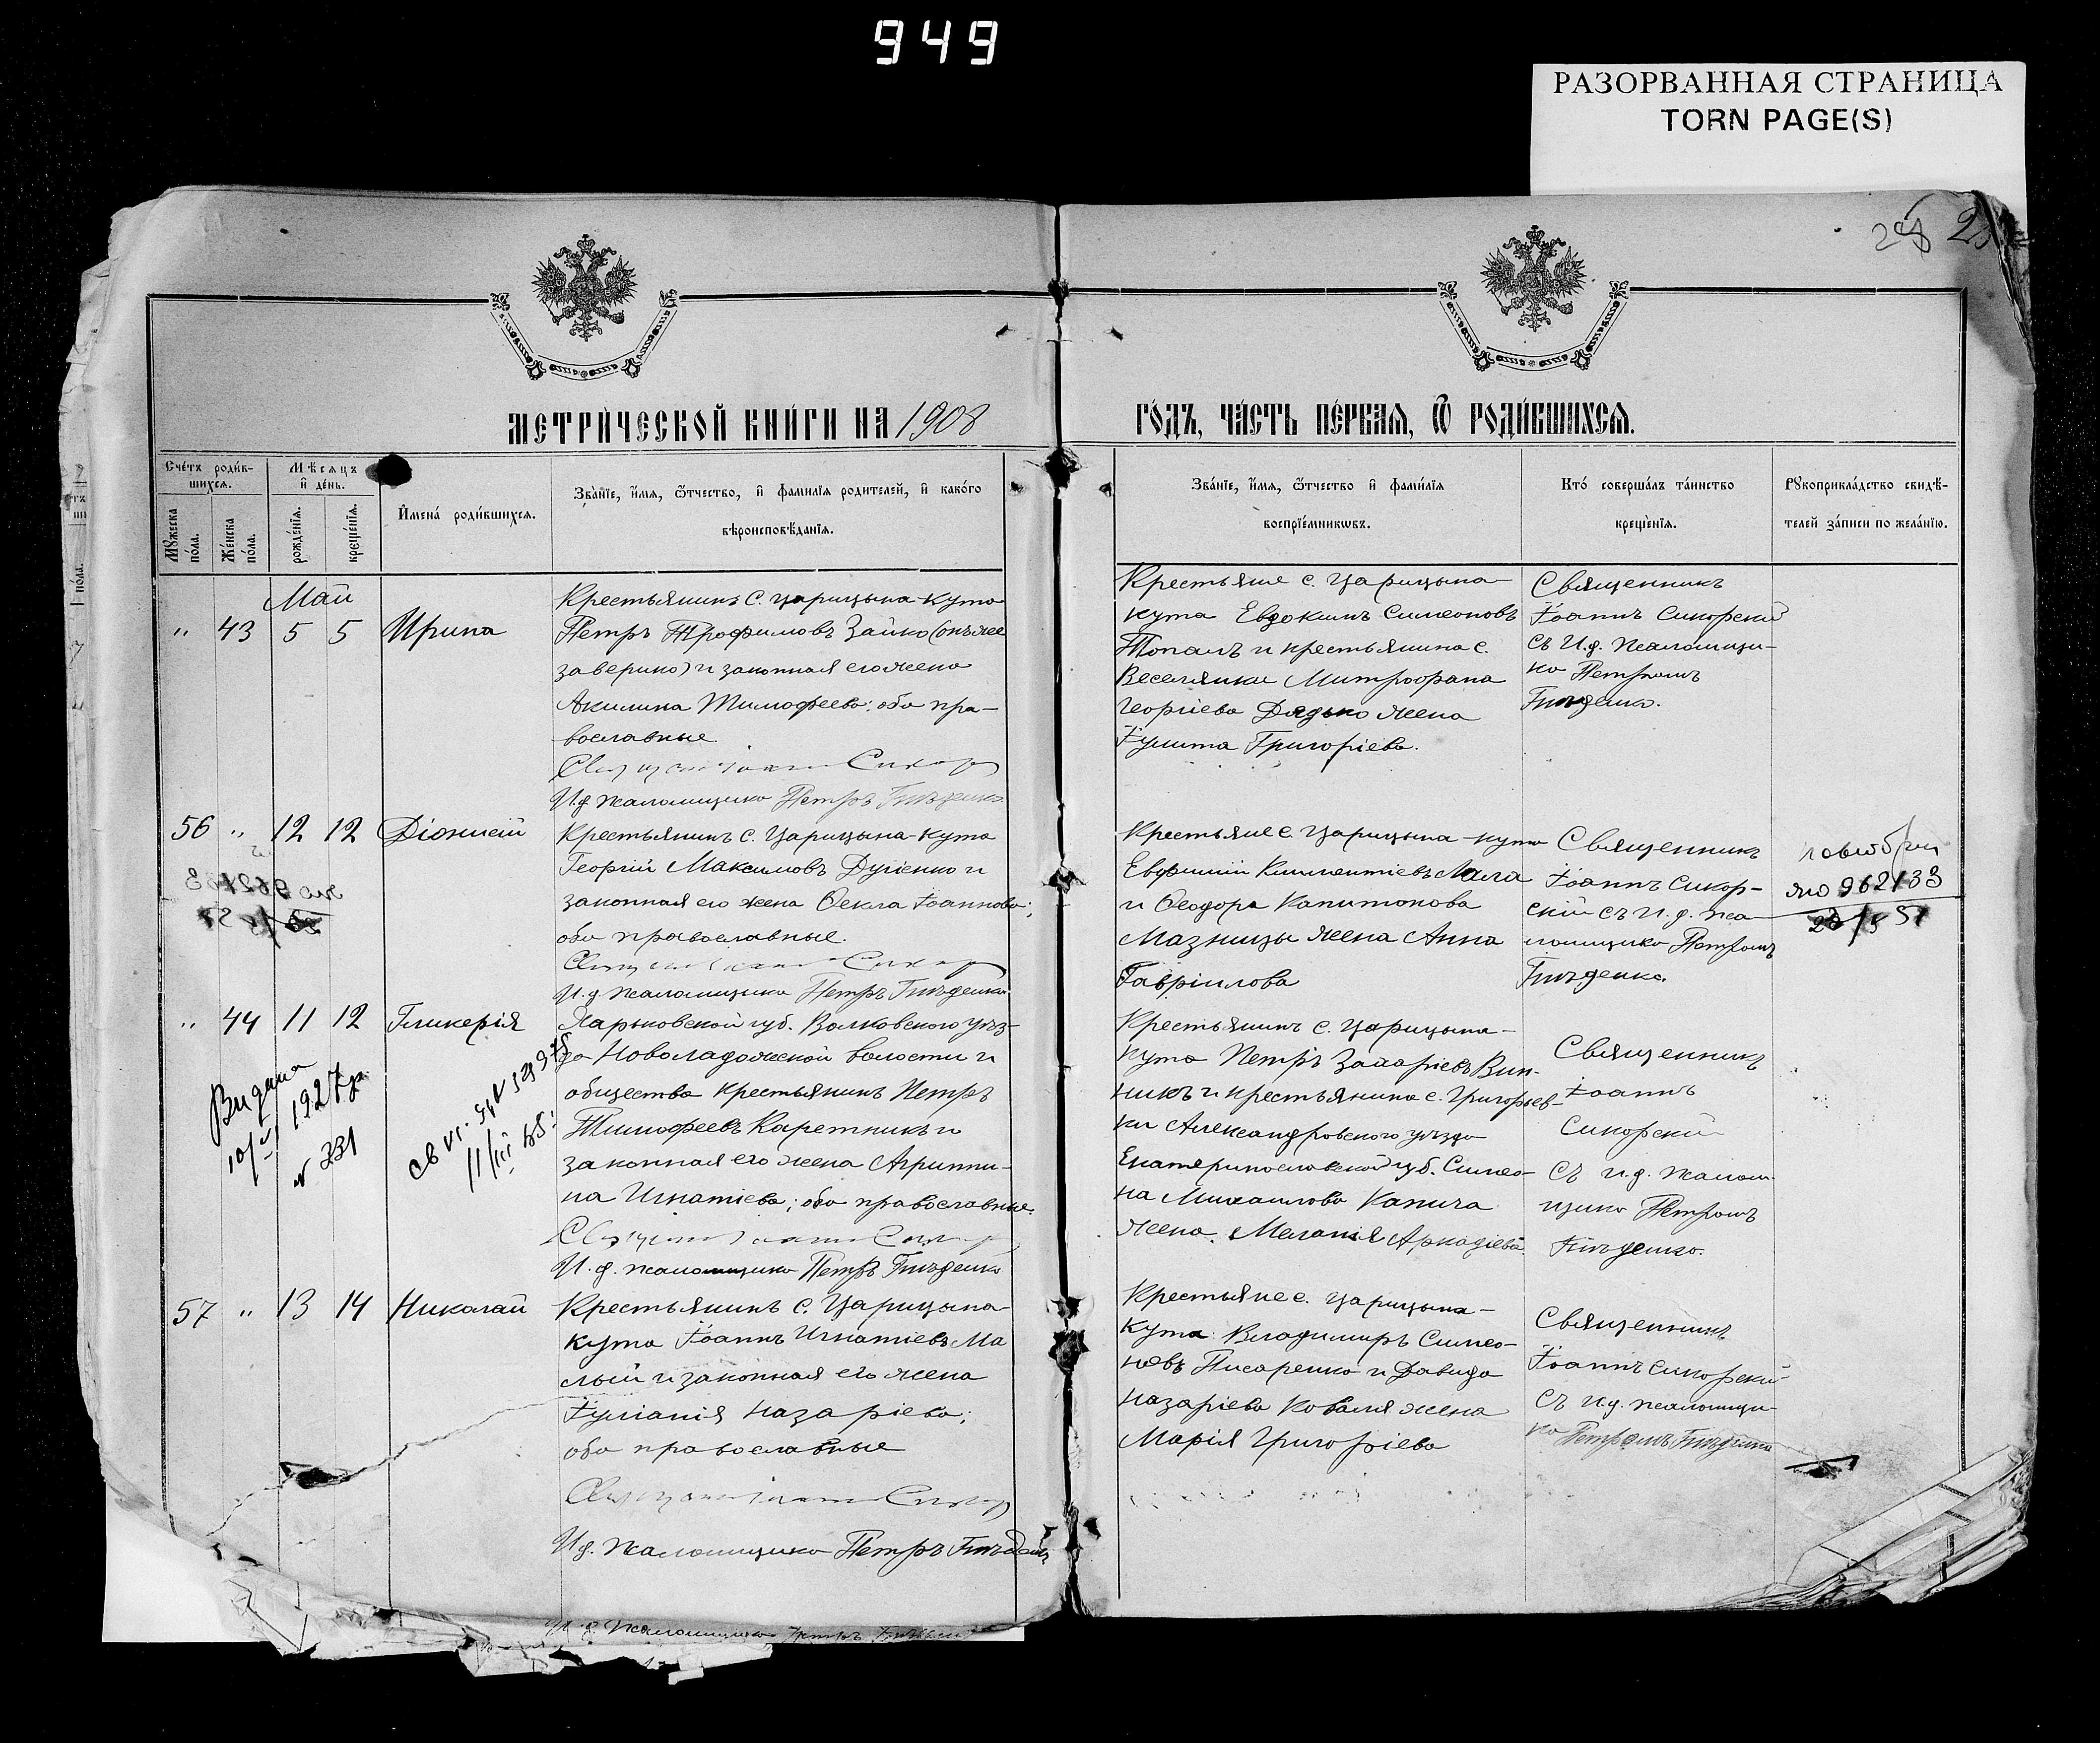 949
РАЗОРВАННАЯ СТРАНИЦА
TORN PAGE(S)
248
МЕТРИЧЕСКОЙ КНИГИ НА 1908
ГОДЪ, ЧАСТЬ ПЕРВАЯ, Ѿ РОДИВШИХСЯ.
Счетъ родив-
шихся.
Мѣсяцъ
и день.
Мужеска пола.
Женска пола.
рожденія.
крещенія.
Имена родившихся.
Званіе, имя, ѿтчество, и фамилія родителей, и какого
вѣроисповѣданія.
Званіе, имя, ѿтчество и фамилія
воспріемниковъ.
Кто совершалъ таинство
крещенія.
Рукоприкладство свидѣ-
телей записи по желанію.
Май
" 43 5 5 Ирина
Крестьянинъ с. Царицына-Кута
Петръ Трофимовъ Зайко (онъ же
заверико) и законная его жена
Акилина Тимофеева; оба пра-
вославные
И.д. псаломщика Петръ Гнѣденко
Крестьяне с. Царицына-
Кута Евдокимъ Симеоновъ
Топалъ и крестьянина с.
Веселянки Митрофана
Георгіева Дядько жена
Іулита Григоріева.
Священникъ
Іоаннъ Сикорскій
съ И.д. псаломщи-
ка Петромъ
Гнѣденко.
56 " 12 12 Діонисій
Крестьянинъ с. Царицына-Кута
Георгій Максимовъ Дуденко и
законная его жена Ѳекла Іоаннова;
оба православные.
И.д. псаломщика Петръ Гнѣденко
Крестьяне с. Царицына-Кута
Евфимій Климентіевъ Мала
и Ѳеодора Капитонова
Мазницы жена Анна
Гавріилова
Священникъ
Іоаннъ Сикор-
скій съ И.д. пса-
ломщика Петромъ
Гнѣденко.
962133
" 44 11 12 Гликерія
Харьковской губ. Волковского уѣз-
да Новоладожской волости и
общества крестьянинъ Петръ
Тимофеевъ Каретникъ и
законная его жена Агриппи-
на Игнатіева; оба православные.
И.д. псаломщика Петръ Гнѣденко
Видана
1927 р
№ 231
Крестьянинъ с. Царицына-
Кута Петръ Захаріевъ Вин-
никъ и крестьянина с. Григорьев-
ки Александровского уѣзда
Екатеринославской губ. Симео-
на Михаилова Капича
жена Меланія Аркадіева
Священникъ
Іоаннъ
Сикорскій
съ И.д. псалом-
щика Петромъ
Гнѣденко.
57 " 13 14 Николай
Крестьянинъ с. Царицына-
Кута Іоаннъ Игнатіевъ Ма
лый и законная его жена
Іуліанія Назаріева;
оба православные
И.д. псаломщика Петръ Гнѣденко
Крестьяне с. Царицына-
Кута: Владимиръ Симео-
новъ Писаренко и Давида
Назаріева Коваля жена
Марія Григоріева
Священникъ
Іоаннъ Сикорскій
съ И.д. псаломщи-
ка Петромъ Гнѣденко
И.д. псаломщика Петръ Гнѣденко